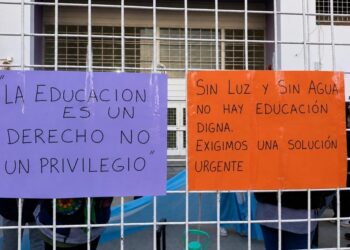 "LA EDUCACION
ES UN
DERECHO NO
UN PRIVILEGIO"
SIN LUZ Y SIN AGUA
NO HAY EDUCACIÓN
DIGNA.
EXIGIMOS UNA SOLUCIÓN
URGENTE